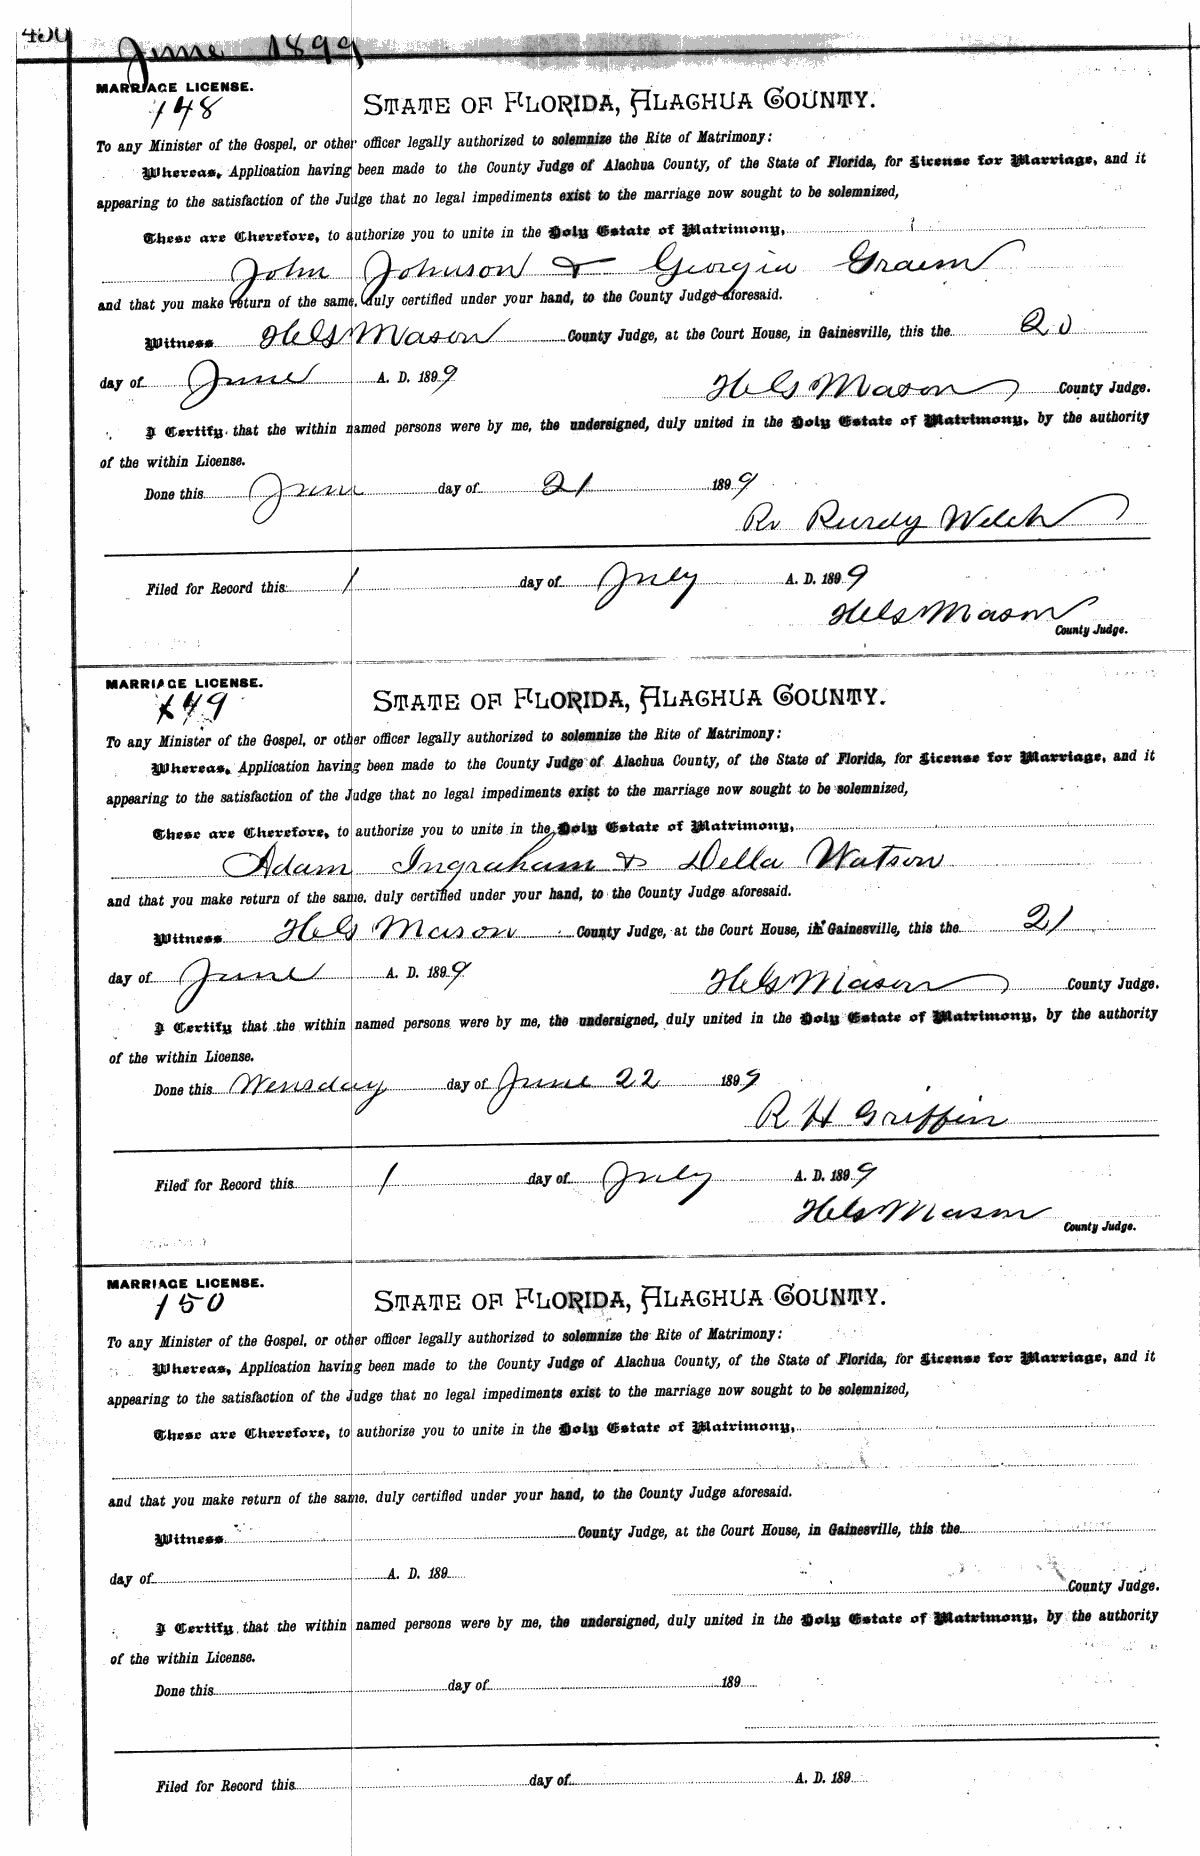 450
June 1899
MARRIAGE LICENSE.
148
STATE OF FLORIDA, ALACHUA COUNTY.
To any Minister of the Gospel, or other officer legally authorized to solemnize the Rite of Matrimony:
Whereas, Application having been made to the County Judge of Alachua County, of the State of Florida, for License for Marriage, and it
appearing to the satisfaction of the Judge that no legal impediments exist to the marriage now sought to be solemnized,
These are Therefore, to authorize you to unite in the Holy Estate of Matrimony,
John Johnson & Georgia
and that you make return of the same, duly certified under your hand, to the County Judge aforesaid.
Witness HelG Mason County Judge, at the Court House, in Gainesville, this the 20
day of June A. D. 1899 HelG Mason County Judge.
I Certify that the within named persons were by me, the undersigned, duly united in the Holy Estate of Matrimony, by the authority
of the within License.
Done this June day of 21 1899
Rv Purdy Welch
Filed for Record this 1 day of July A. D. 1899
HelG Mason
County Judge.
MARRIAGE LICENSE.
149
STATE OF FLORIDA, ALACHUA COUNTY.
To any Minister of the Gospel, or other officer legally authorized to solemnize the Rite of Matrimony:
Whereas, Application having been made to the County Judge of Alachua County, of the State of Florida, for License for Marriage, and it
appearing to the satisfaction of the Judge that no legal impediments exist to the marriage now sought to be solemnized,
These are Therefore, to authorize you to unite in the Holy Estate of Matrimony,
Adam Ingraham & Della Watson
and that you make return of the same, duly certified under your hand, to the County Judge aforesaid.
Witness HelG Mason County Judge, at the Court House, in Gainesville, this the 21
day of June A. D. 1899 HelG Mason County Judge.
I Certify that the within named persons were by me, the undersigned, duly united in the Holy Estate of Matrimony, by the authority
of the within License.
Done this Wensday day of June 22 1899
R H Griffin
Filed for Record this 1 day of July A. D. 1899
HelG Mason
County Judge.
MARRIAGE LICENSE.
150
STATE OF FLORIDA, ALACHUA COUNTY.
To any Minister of the Gospel, or other officer legally authorized to solemnize the Rite of Matrimony:
Whereas, Application having been made to the County Judge of Alachua County, of the State of Florida, for License for Marriage, and it
appearing to the satisfaction of the Judge that no legal impediments exist to the marriage now sought to be solemnized,
These are Therefore, to authorize you to unite in the Holy Estate of Matrimony,
and that you make return of the same, duly certified under your hand, to the County Judge aforesaid.
Witness County Judge, at the Court House, in Gainesville, this the
day of A. D. 189 County Judge.
I Certify that the within named persons were by me, the undersigned, duly united in the Holy Estate of Matrimony, by the authority
of the within License.
Done this day of 189
Filed for Record this day of A. D. 189